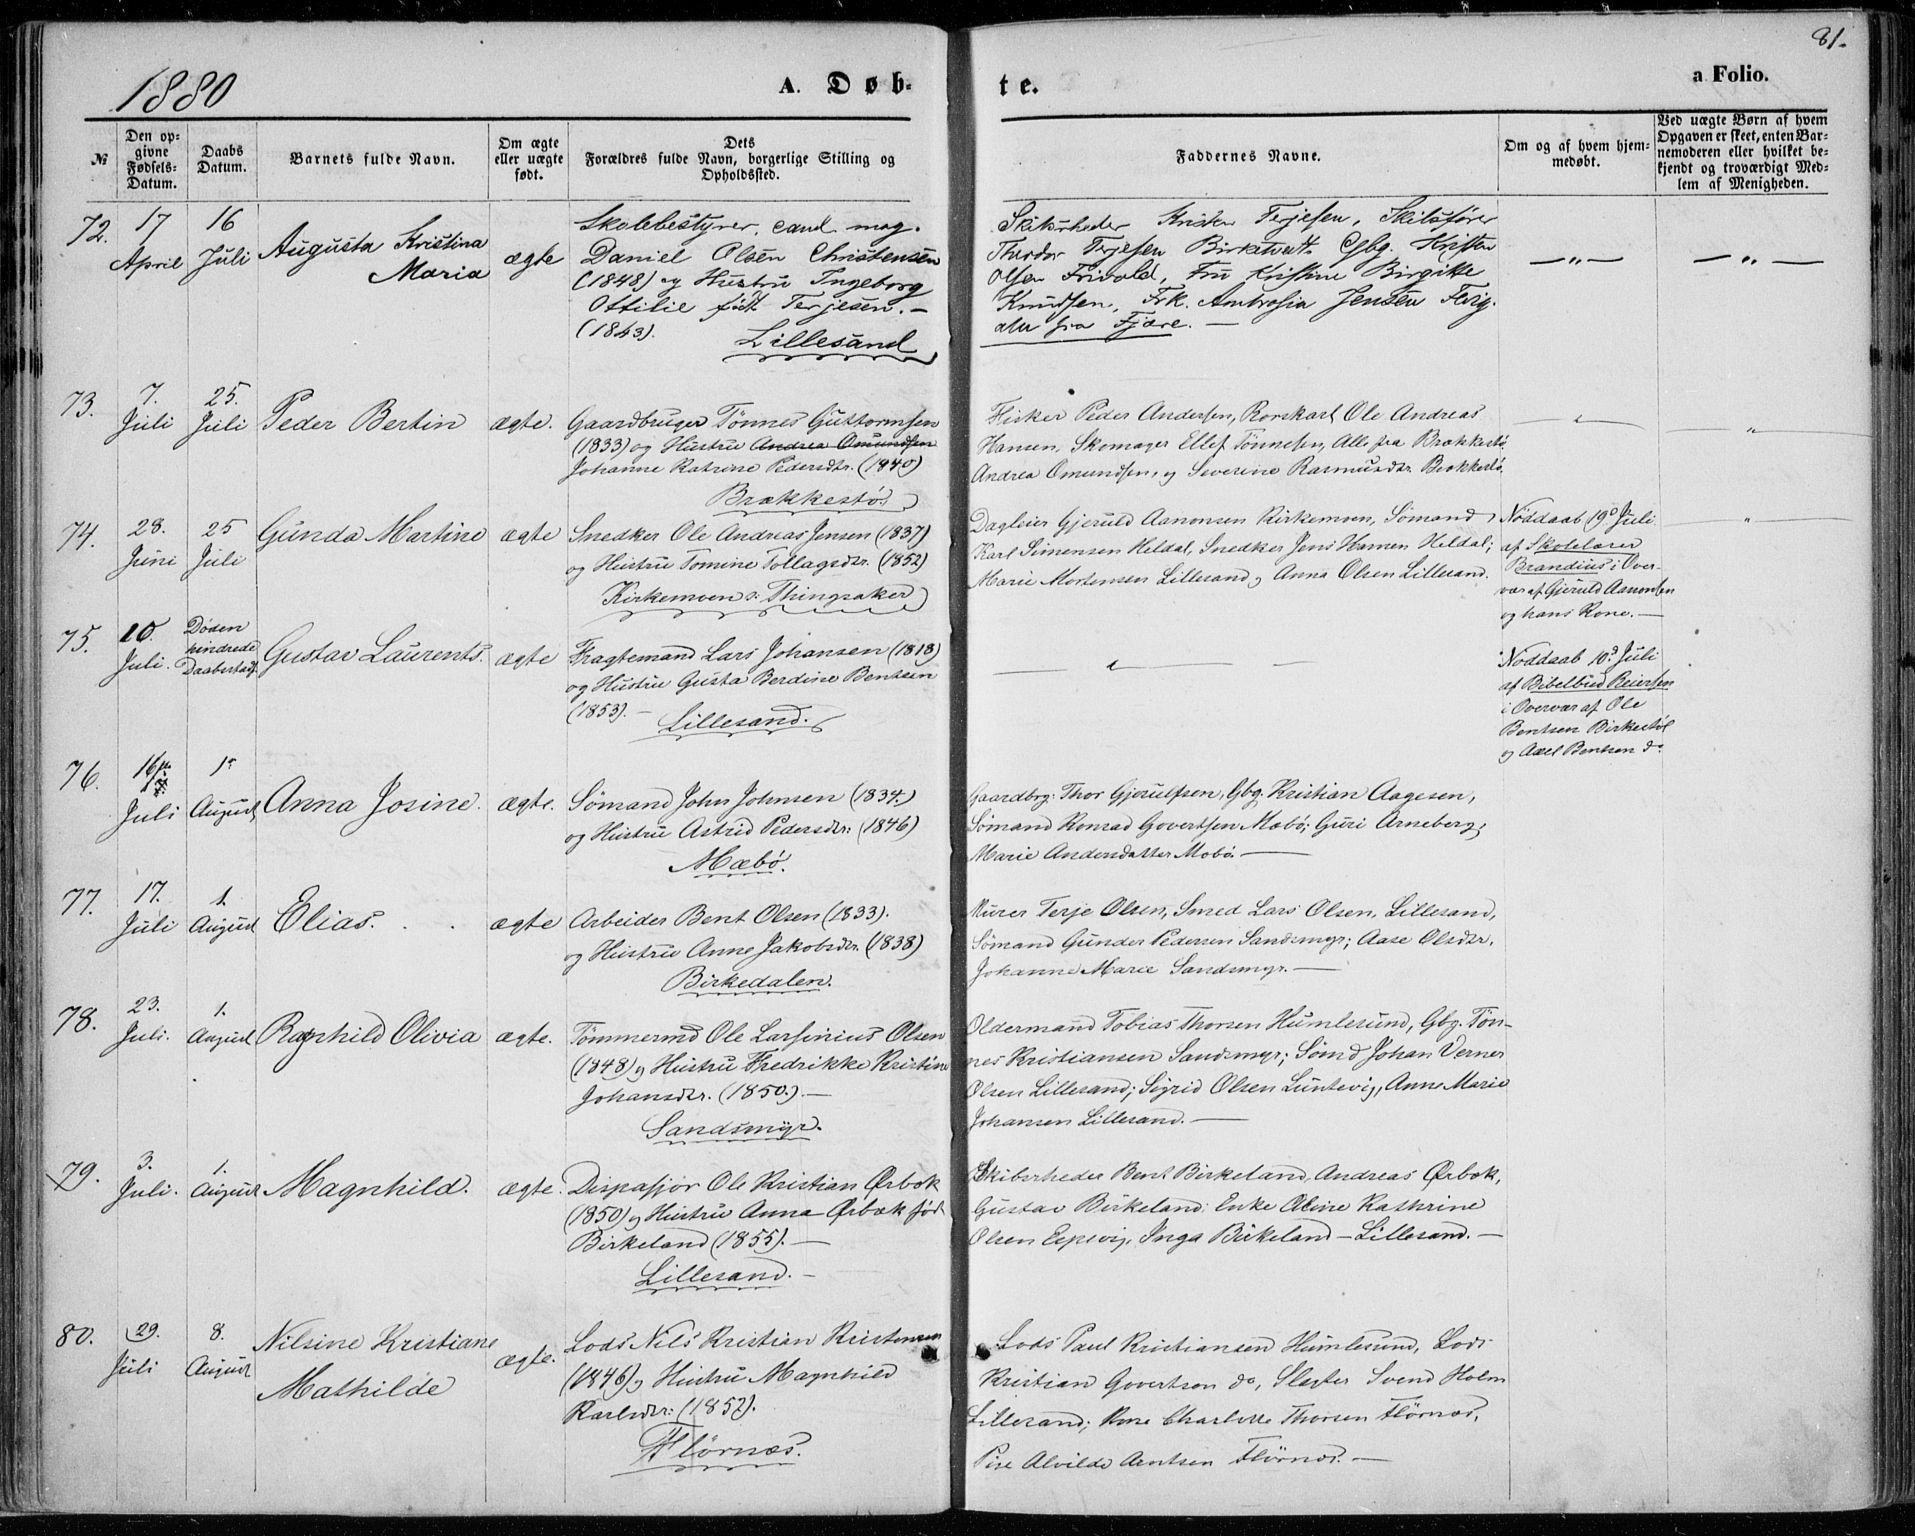 81.
1880
A. Døb-
te.
a Folio.
№
Den op-
givne
Fødsels-
Datum.
Daabs
Datum.
Barnets fulde Navn.
Om ægte
eller uægte
født.
Dets
Forældres fulde Navn, borgerlige Stilling og
Opholdssted.
Faddernes Navne.
Om og af hvem hjem-
medøbt.
Ved uægte Børn af hvem
Opgaven er skeet, enten Bar-
nemoderen eller hvilket be-
kjendt og troværdigt Med-
lem af Menigheden.
72.
17
April
16
Juli
Augusta Kristina
Maria
ægte
Skolebestyrer, cand. mag.
Daniel Olsen Christensen
(1848) og Hustru Ingeborg
Ottilie født Terjesen. —
Lillesand
Skibsrheder Terjesen, Skibsfører
Terjesen Birketvedt, Gbg. Kristen
Olsen Frivold, Fru Kristine Birgitte
Knudsen, Frk. Ambrosia Jensen
fra Fjære. —
— „ —
— „ —
73.
7.
Juli
25.
Juli
Peder Bertin
ægte.
Gaardbruger Tønnes Guttormsen
(1833) og Hustru Andrea Omundsen
Johanne Katrine Pedersdtr. (1840)
Brækkestø.
Fisker Peder Andersen, Rorskarl Ole Andreas
Hansen, Skomager Ellef Tønnesen, Alle fra Brækkestø
Andrea Omundsen, og Severine Rasmusdtr. Brækkestø.
74.
28.
Juni
25
Juli
Gunda Martine
ægte
Snedker Ole Andreas Jensen (1837)
og Hustru Tomine Tollagsdtr. (1852)
Kirkemoen s: Thingsaker
Dagleier Gjeruld Aanonsen Kirkemoen, Sømand
Karl Simensen Heldal, Snedker Jens Hansen Heldal;
Marie Mortensen Lillesand, Anna Olsen Lillesand.
Nøddaab 19d Juli
af Skolelærer
Brandius i Over-
vær af Gjeruld Aanonsen
og hans Kone. —
75.
10.
Juli.
Døden
hindrede
Gustav Laurents.
ægte
Fragtemand Lars Johansen (1818)
og Hustru Gusta Berdine Bentsen
(1853). —
Lillesand.
Nøddaab 10d Juli
af Bibelbud Reiersen
i Overvær af Ole
Bentsen Birkestøl
og Axel Bentsen do
76.
16
Juli
1.
August
Anna Josine.
ægte.
Sømand John Johnsen (1834.)
og Hustru Astrid Pedersdtr: (1846)
Mæbø.
Gaardbrg. Thor Gjerulfsen, Gbg. Kristian Aagesen,
Sømand Konrad Govertsen Mæbø; Guri Arneberg,
Marie Andersdatter Mæbø. —
77.
17.
Juli
1.
August
Elias.
ægte
Arbeider Bent Olsen (1833).
og Hustru Anne Jakobsdtr. (1838)
Birkedalen.
Murer Terje Olsen, Smed Lars Olsen, Lillesand,
Sømand Gunder Pedersen Sandsmyr; Aase Olsdtr.
Johanne Marie Sandsmyr. —
78.
23.
Juli.
1.
August
Ragnhild Olivia
ægte.
Tømmermd Ole Larsinius Olsen
(1848) og Hustru Fredrikke Kristine
Johansdtr. (1850.) —
Sandsmyr.
Oldermand Tobias Thorsen Humlesund, Gbg. Tøn-
nes Kristiansen Sandsmyr; Sømd Johan Verner
Olsen Lillesand; Sigrid Olsen Luntevig, Anne Marie
Johansen Lillesand. —
79.
3.
Juli.
1.
August
Magnhild.
ægte.
Dispasjør Ole Kristian Ørbæk
(1850) og Hustru Anna Ørbæk fød
Birkeland (1855). —
Lillesand. —
Skibsrheder Bent Birkeland, Andreas Ørbæk,
Gustav Birkeland; Enke Oline Kathrine
Olsen Espevig, Inga Birkeland — Lillesand. —
80.
29.
Juli
8.
August
Nilsine Kristiane
Mathilde
ægte.
Lods Nils Kristian Kristensen
(1846) og Hustru Magnhild
Karlsdtr: (1852).
Flørnæs.
Lods Paul Kristiansen Humlesund, Lods
Kristian Govertson do, Slagter Svend Holm
Lillesand; Kone Charlotte Thorsen Flørnæs,
Pige Alvilde Arntsen Flørnæs. —